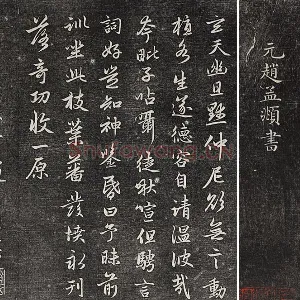 元趙孟頫書
玄天幽且默仲尼欲無言動
植各生遂德容自清溫彼哉
夸毗子呫囁徒啾喧但騁言
詞好豈知神鑒昏曰予昧前
訓坐此枝葉蕃發憤永刊
落奇功收一原